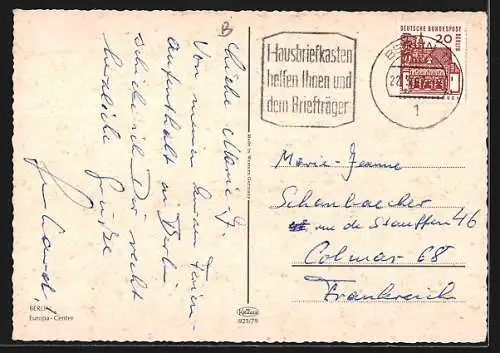 B
Liebe Marie J.
Von meinem kurzen Ferien-
aufenthalt in Berlin
schicke ich Dir recht
herzliche Grüße
BERLIN
Europa-Centre
Made in Western Germany
KRÜGER
921/79
Hausbriefkasten
helfen Ihnen und
dem Briefträger
DEUTSCHE BUNDESPOST
BERLIN
20
BERLIN
1
Marie-Jeanne
Schonbaecher
rue de Stauffen 46
Colmar 68
Frankreich